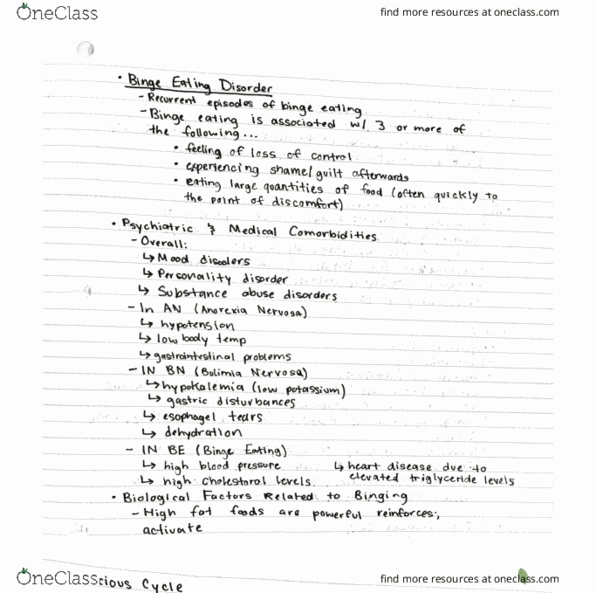 OneClass
find more resources at oneclass.com
• Binge Eating Disorder
- Recurrent episodes of binge eating
- Binge eating is associated w/ 3 or more of
the following...
• feeling of loss of control
• experiencing shame/guilt afterwards
• eating large quantities of food (often quickly to
the point of discomfort)
• Psychiatric & Medical Comorbidities
- Overall:
↳ Mood disoders
↳ Personality disorder
↳ Substance abuse disorders
- In AN (Anorexia Nervosa)
↳ hypotension
↳ low body temp
↳ gastrointestinal problems
- IN BN (Bulimia Nervosa)
↳ hypokalemia (low potassium)
↳ gastric disturbances
↳ esophagel tears
↳ dehydration
- IN BE (Binge Eating)
↳ high blood pressure
↳ high cholestorol levels
↳ heart disease due to
elevated triglyceride levels
• Biological Factors Related to Binging
- High fat foods are powerful reinforces;
activate
OneClass
cious Cycle
find more resources at oneclass.com